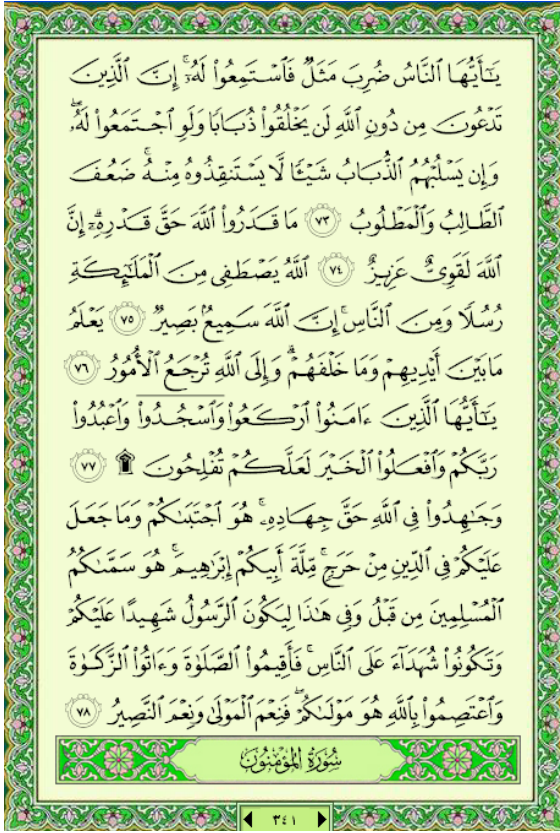 يَـٰٓأَيُّهَا ٱلنَّاسُ ضُرِبَ مَثَلٌ فَٱسْتَمِعُوا۟ لَهُۥٓ ۚ إِنَّ ٱلَّذِينَ
تَدْعُونَ مِن دُونِ ٱللَّهِ لَن يَخْلُقُوا۟ ذُبَابًا وَلَوِ ٱجْتَمَعُوا۟ لَهُۥ ۖ
وَإِن يَسْلُبْهُمُ ٱلذُّبَابُ شَيْـًٔا لَّا يَسْتَنقِذُوهُ مِنْهُ ۚ ضَعُفَ
ٱلطَّالِبُ وَٱلْمَطْلُوبُ ٧٣ مَا قَدَرُوا۟ ٱللَّهَ حَقَّ قَدْرِهِۦٓ ۗ إِنَّ
ٱللَّهَ لَقَوِىٌّ عَزِيزٌ ٧٤ ٱللَّهُ يَصْطَفِى مِنَ ٱلْمَلَـٰٓئِكَةِ
رُسُلًا وَمِنَ ٱلنَّاسِ ۚ إِنَّ ٱللَّهَ سَمِيعٌۢ بَصِيرٌ ٧٥ يَعْلَمُ
مَا بَيْنَ أَيْدِيهِمْ وَمَا خَلْفَهُمْ ۗ وَإِلَى ٱللَّهِ تُرْجَعُ ٱلْأُمُورُ ٧٦
يَـٰٓأَيُّهَا ٱلَّذِينَ ءَامَنُوا۟ ٱرْكَعُوا۟ وَٱسْجُدُوا۟ وَٱعْبُدُوا۟
رَبَّكُمْ وَٱفْعَلُوا۟ ٱلْخَيْرَ لَعَلَّكُمْ تُفْلِحُونَ ۩ ٧٧
وَجَـٰهِدُوا۟ فِى ٱللَّهِ حَقَّ جِهَادِهِۦ ۚ هُوَ ٱجْتَبَىٰكُمْ وَمَا جَعَلَ
عَلَيْكُمْ فِى ٱلدِّينِ مِنْ حَرَجٍ ۚ مِّلَّةَ أَبِيكُمْ إِبْرَٰهِيمَ ۚ هُوَ سَمَّىٰكُمُ
ٱلْمُسْلِمِينَ مِن قَبْلُ وَفِى هَـٰذَا لِيَكُونَ ٱلرَّسُولُ شَهِيدًا عَلَيْكُمْ
وَتَكُونُوا۟ شُهَدَآءَ عَلَى ٱلنَّاسِ ۚ فَأَقِيمُوا۟ ٱلصَّلَوٰةَ وَءَاتُوا۟ ٱلزَّكَوٰةَ
وَٱعْتَصِمُوا۟ بِٱللَّهِ هُوَ مَوْلَىٰكُمْ ۖ فَنِعْمَ ٱلْمَوْلَىٰ وَنِعْمَ ٱلنَّصِيرُ ٧٨
سُورَةُ المُؤْمِنُونَ
٣٤١